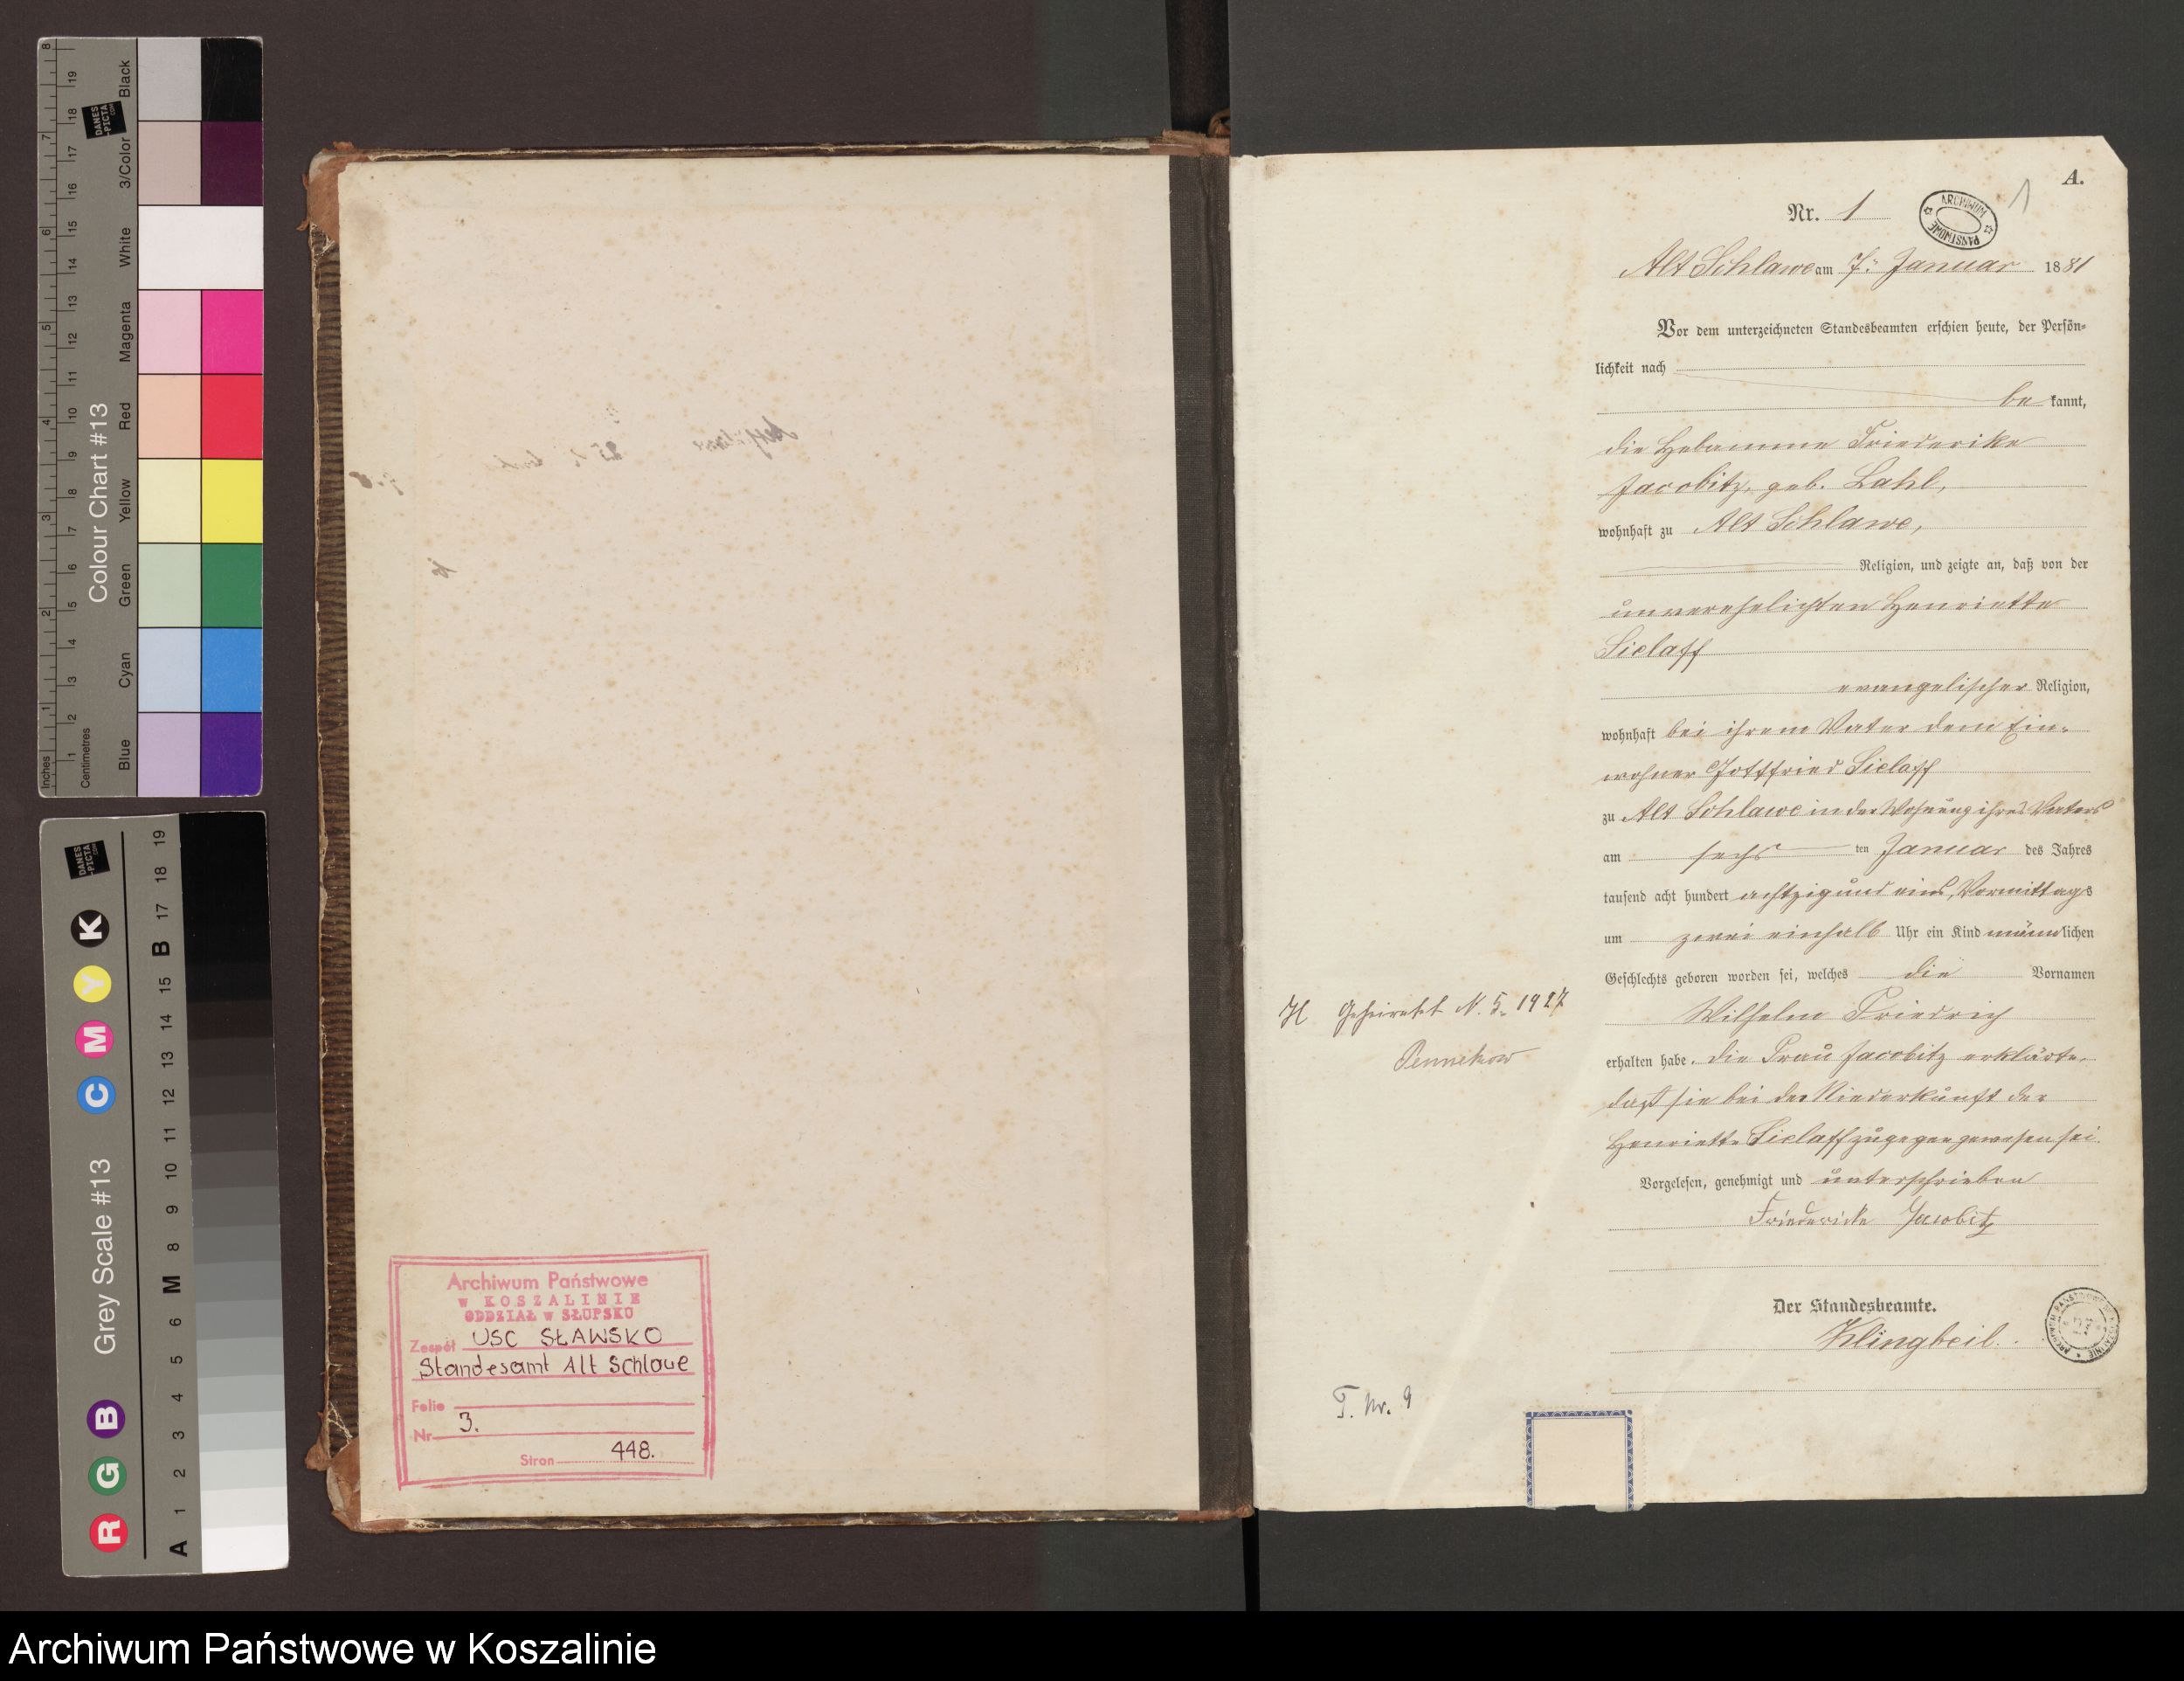 Colour Chart #13
Inches
Centimetres
Blue
Cyan
Green
Yellow
Red
Magenta
White
3/Color
Black
DANES
-PICTA
.COM
Grey Scale #13
R G B C M Y K
A 1 2 3 4 5 6 M 8 9 10 11 12 13 14 15 B 17 18 19
DANES
-PICTA
.COM
Archiwum Państwowe
W KOSZALINIE
ODDZIAŁ w SŁUPSKU
Zespół USC SŁAWSKO
Standesamt Alt Schlawe
Folio
Nr 3.
Stron 448.
A.
1
Nr. 1
ARCHIWUM PAŃSTWOWE
Alt Schlawe am 7ten Januar 1881
Vor dem unterzeichneten Standesbeamten erschien heute, der Persön-
lichkeit nach
be kannt,
die Hebamme Friederike
Jacobitz, geb. Lahl,
wohnhaft zu Alt Schlawe,
Religion, und zeigte an, daß von der
unverehelichten Henriette
Sielaff
evangelischer Religion,
wohnhaft bei ihrem Vater dem Ein-
wohner Gottfried Sielaff
zu Alt Schlawe in der Wohnung ihres Vaters
am sechs ten Januar des Jahres
tausend acht hundert achtzig und eins, Vormittags
um zwei einhalb Uhr ein Kind männlichen
Geschlechts geboren worden sei, welches die Vornamen
Wilhelm Friedrich
erhalten habe. Die Frau Jacobitz erklärte,
daß sie bei der Niederkunft der
Henriette Sielaff zugegen gewesen sei.
Vorgelesen, genehmigt und unterschrieben
Friedericke Jacobitz
Der Standesbeamte.
Klingbeil.
H Geheiratet N. 5. 1927
Pennekow
T. Nr. 9
Archiwum Państwowe w Koszalinie